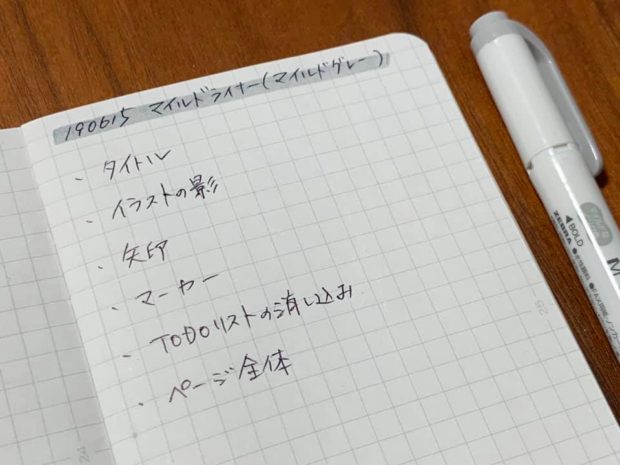 190615 マイルドライナー(マイルドグレー)
・タイトル
・イラストの影
・矢印
・マーカー
・TODOリストの消し込み
・ページ全体
◀BOLD
ZEBRA
M
24
25